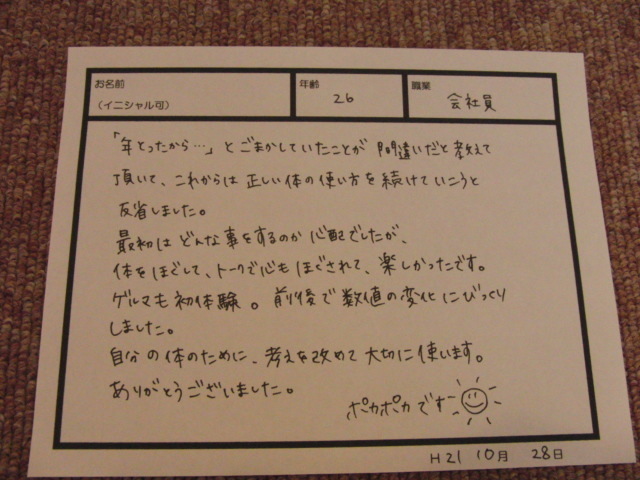 お名前
(イニシャル可)
年齢
26
職業
会社員
「年とったから…」とごまかしていたことが 間違いだと教えて
頂いて、これからは正しい体の使い方を続けていこうと
反省しました。
最初はどんな事をするのか心配でしたが、
体をほぐして、トークで心もほぐされて、楽しかったです。
ゲルマも初体験。前後で数値の変化にびっくり
しました。
自分の体のために、考えを改めて大切に使います。
ありがとうございました。
ポカポカです
H21 10月 28日